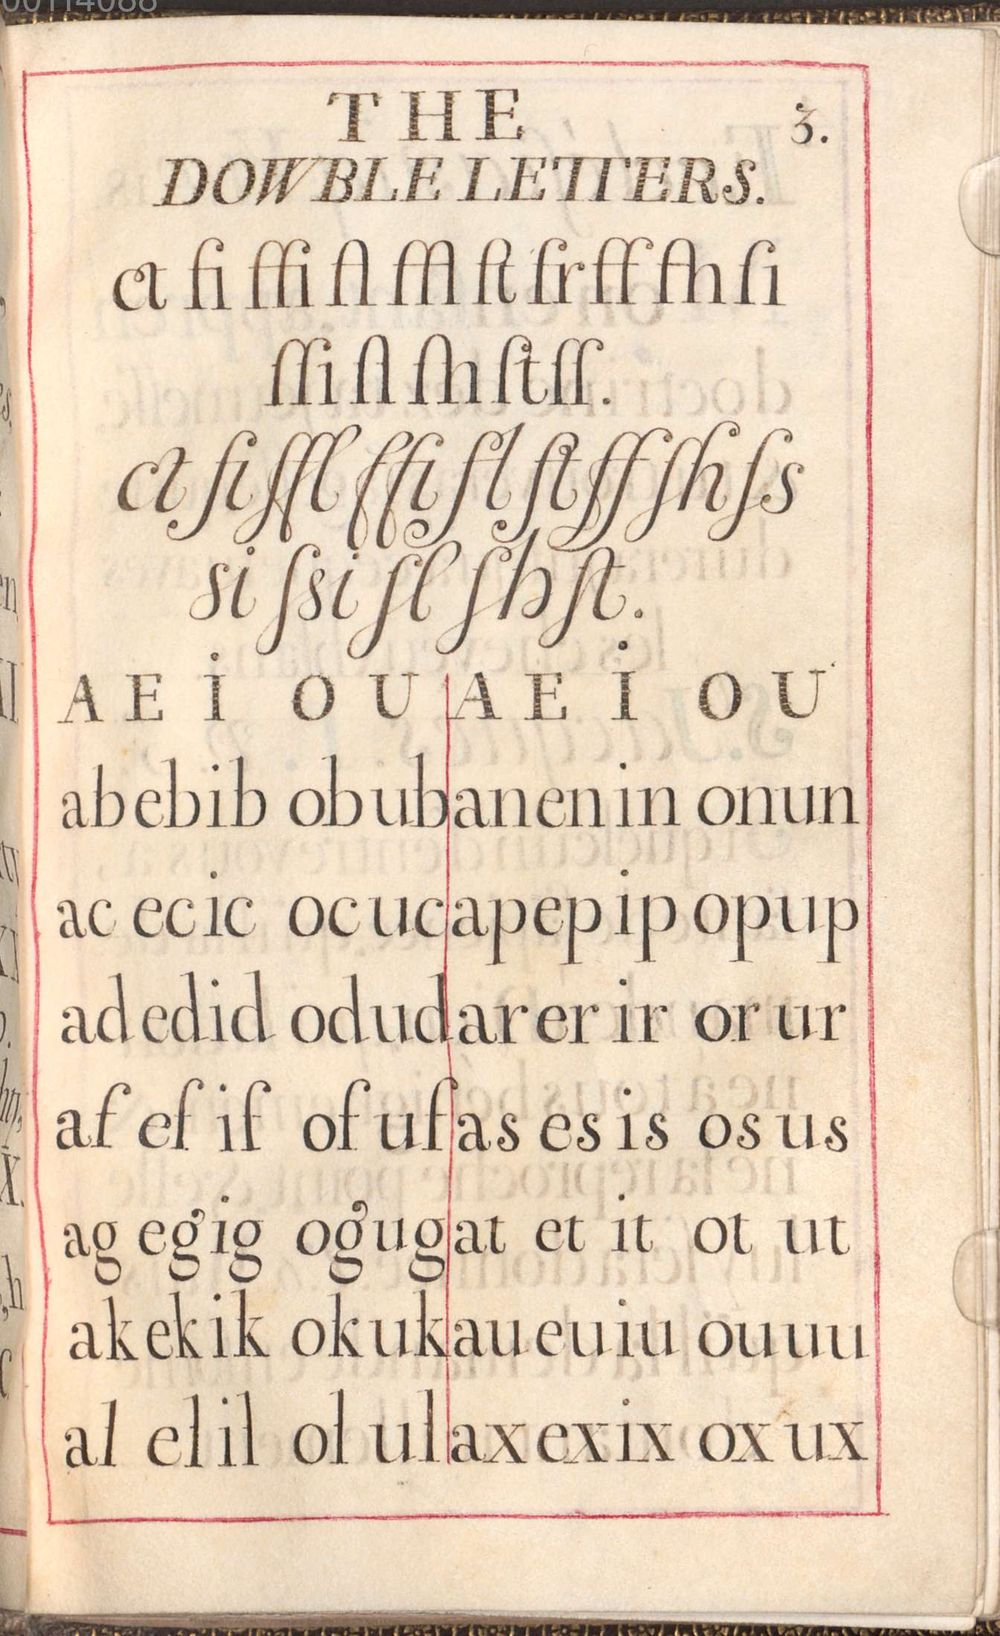 00114088
THE 3.
DOWBLE LETTERS.
ct fi ffi fl ffl ſt fr ff fh ſi
ſſi ſl ſh ſt ſſ.
ct fi ffl ffi fl ſt ff ſh ſs
si ſsi ſl ſh ſt.
A E İ O U A E İ O U
ab eb ib ob ub an en in on un
ac ec ic oc uc ap ep ip op up
ad ed id od ud ar er ir or ur
af ef if of uf as es is os us
ag eg ig og ug at et it ot ut
ak ek ik ok uk au eu iu ou uu
al el il ol ul ax ex ix ox ux